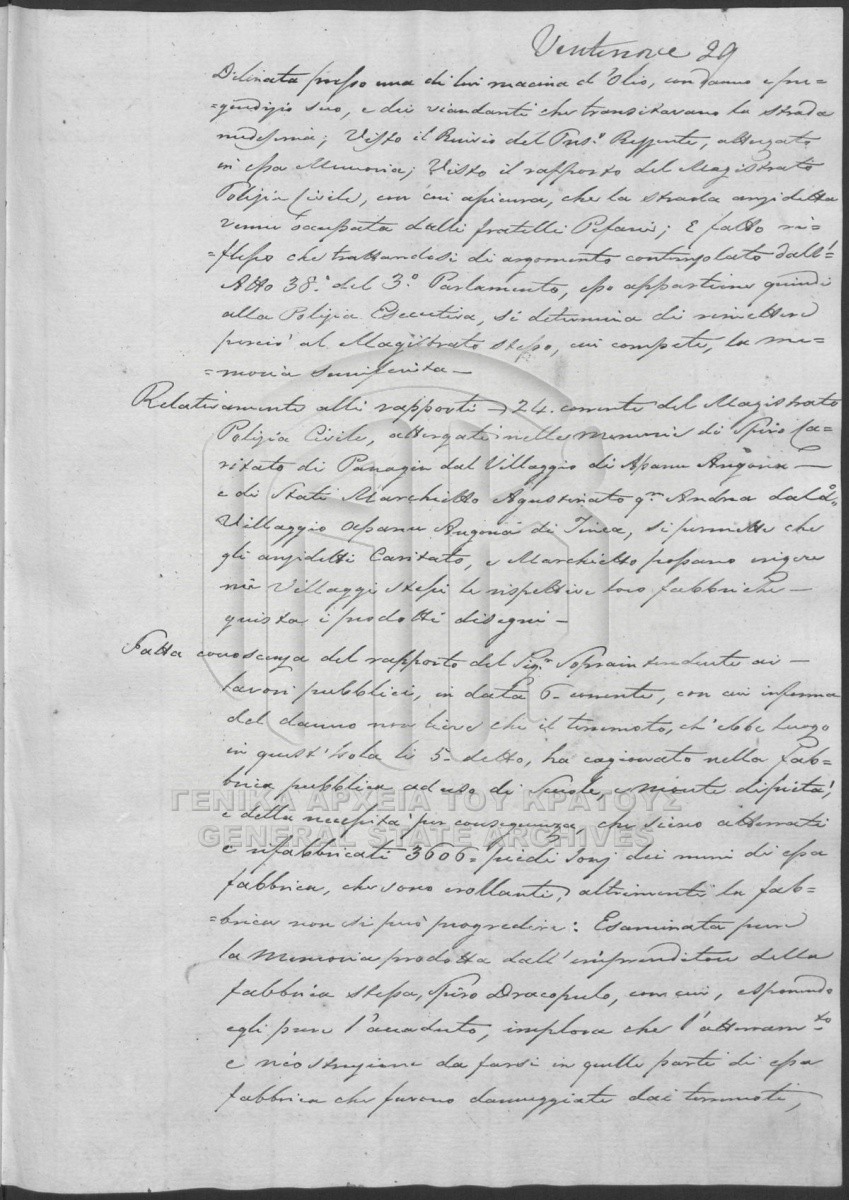 Ventinove 29
Delineata presso una di lui macina d'Olio, con danno e pre-
=giudizio suo, e dei viandanti che transitavano la strada
medesima; Visto il Reuvio del Pns.e Reggente, attergato
in essa Memoria; Visto il rapporto del Magistrato
Polizia Civile, con cui assicura, che la strada anzidetta
venne occupata dalli fratelli Pefani; E fatto ri-
=flesso che trattandosi di argomento contemplato dall'
Atto 38.o del 3.o Parlamento, esso appartiene quindi
alla Polizia Esecutiva, si determina di rimettere
perciò al Magistrato stesso, cui compete, la me=
=moria surriferita —
Relativamente alli rapporti 24. corrente del Magistrato
Polizia Civile, attergati nelle memorie di Spiro Ca-
ritato di Panagin dal Villaggio di Apanu
e di Stati Marchietto Agustinato q.m Andrea dal
Villaggio Apanu di Tinea, si permette che
gli anzidetti Caritato, e Marchietto possano erigere
nei Villaggi stessi le rispettive loro fabbriche —
giusta i prodotti disegni —
Fatta conoscenza del rapporto del Sig.r Sopraintendente ai —
lavori pubblici, in data 6. corrente, con cui informa
del danno non lieve che il terremoto, ch'ebbe luogo
in quest'Isola li 5. detto, ha cagionato nella Fab=
brica pubblica ad uso di Scuole, e Monte di pietà;
e della necessità per conseguenza che siino atterrati
e rifabbricati 3606= piedi dei muri di essa
fabbrica, che sono crollanti, altrimenti la fab=
=brica non si può progredire: Esaminata pure
la Memoria prodotta dall'imprenditore della
fabbrica stessa, Spiro Dracopulo, con cui, esponendo
egli pure l'accaduto, implora che l'atterram.to
e ricostruzione da farsi in quelle parti di essa
fabbrica che furono danneggiate dai terremoti,
ΓΕΝΙΚΑ ΑΡΧΕΙΑ ΤΟΥ ΚΡΑΤΟΥΣ
GENERAL STATE ARCHIVES